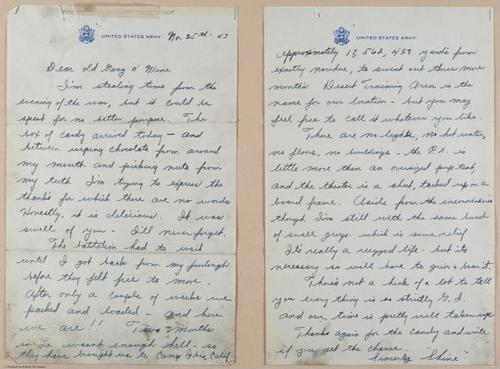 UNITED STATES ARMY
Nov. 25th - 43
Dear old Gang o' Mine
I'm stealing time from the
evening of the war, but it could be
spent for no better purpose. The
box of candy arrived today - and
between wiping chocolate from around
my mouth and picking nuts from
my teeth I'm trying to express the
thanks for which there are no words
Honestly, it is delicious. It was
swell of you - I'll never forget.
The battalion had to wait
until I got back from my furlough
before they felt free to move.
After only a couple of weeks we
packed and loaded - and here
we are!! Two months
in La wasn't enough hell - so
they have brought us to Camp Ibis, Calif,
UNITED STATES ARMY
approximately 17,562,429 yards from
exactly nowhere, to sweat out three more
months. Desert Training Area is the
name for our location - but you may
feel free to call it whatever you like.
There are no lights, no hot water,
no floors, no buildings - the P.X. is
little more than an oversized pup tent,
and the theater is a shed, tacked up in a
board frame. Aside from the inconveniences
though I'm still with the same bunch
of swell guys which is some relief
It's really a rugged life - but its
necessary so will have to grin & bear it.
There's not a heck of a lot to tell
you every thing is so strictly G.I.
and our time is pretty well taken up.
Thanks again for the candy and write
if you get the chance.
Sincerely "Shine"